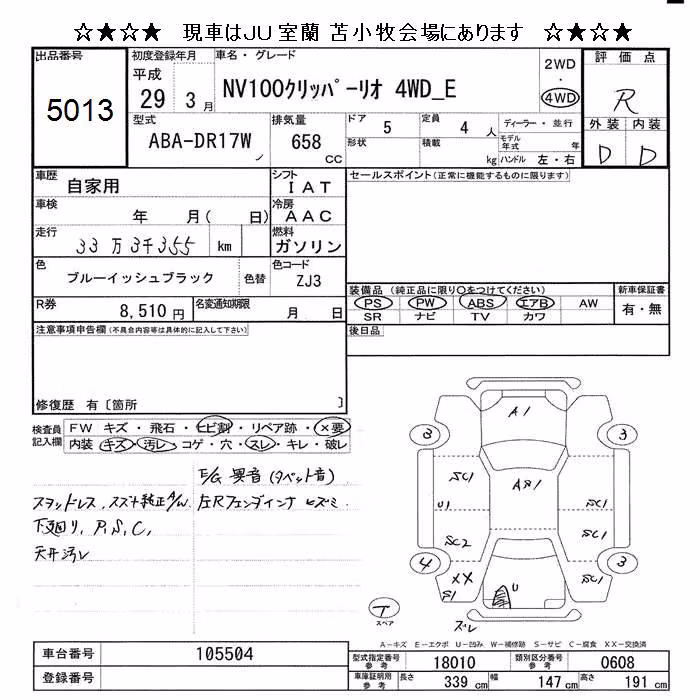 ☆★☆★ 現車はJU室蘭 苫小牧会場にあります ☆★☆★
出品番号 初度登録年月 車名・グレード 2WD 評価点
5013 平成 29 3月 NV100クリッパーリオ 4WD_E ・ 4WD R
型式 排気量 ドア 定員 ディーラー・並行 外装 内装
ABA-DR17W 658 CC 5 4 人 モデル年式 年 D D
形状 積載 kg ハンドル 左・右
車歴 自家用 シフト IAT セールスポイント(正常に機能するものに限ります)
車検 年 月( 日) 冷房 AAC
走行 33万3千355 km 燃料 ガソリン
色 ブルーイッシュブラック 色替 色コード ZJ3
装備品 (純正品に限り○をつけてください) 新車保証書
R券 8,510円 名変通知期限 月 日 PS PW ABS エアB AW 有・無
SR ナビ TV カワ
注意事項申告欄(不具合内容等は具体的に記入して下さい) 後日品
修復歴 有〔箇所 〕
検査員記入欄 FW キズ・飛石・ヒビ割・リペア跡・×要
内装 キズ・汚レ・コゲ・穴・スレ・キレ・破レ
E/G 異音(タペット音)
スタッドレス、スズキ純正A/W 左Rフェンダインナ ヒズミ
下廻り、P、S、C、
天井汚レ
A1
3 3
SC1 SC1
AB1
U1
SC2 SC1
4 3
XX SC1
S1 U
T スペア ズレ
A-キズ E-エクボ U-凹み W-補修跡 S-サビ C-腐食 XX-交換済
車台番号 105504 型式指定番号 参考 18010 類別区分番号 参考 0608
登録番号 車庫証明用 参考 長さ 339 cm 幅 147 cm 高さ 191 cm